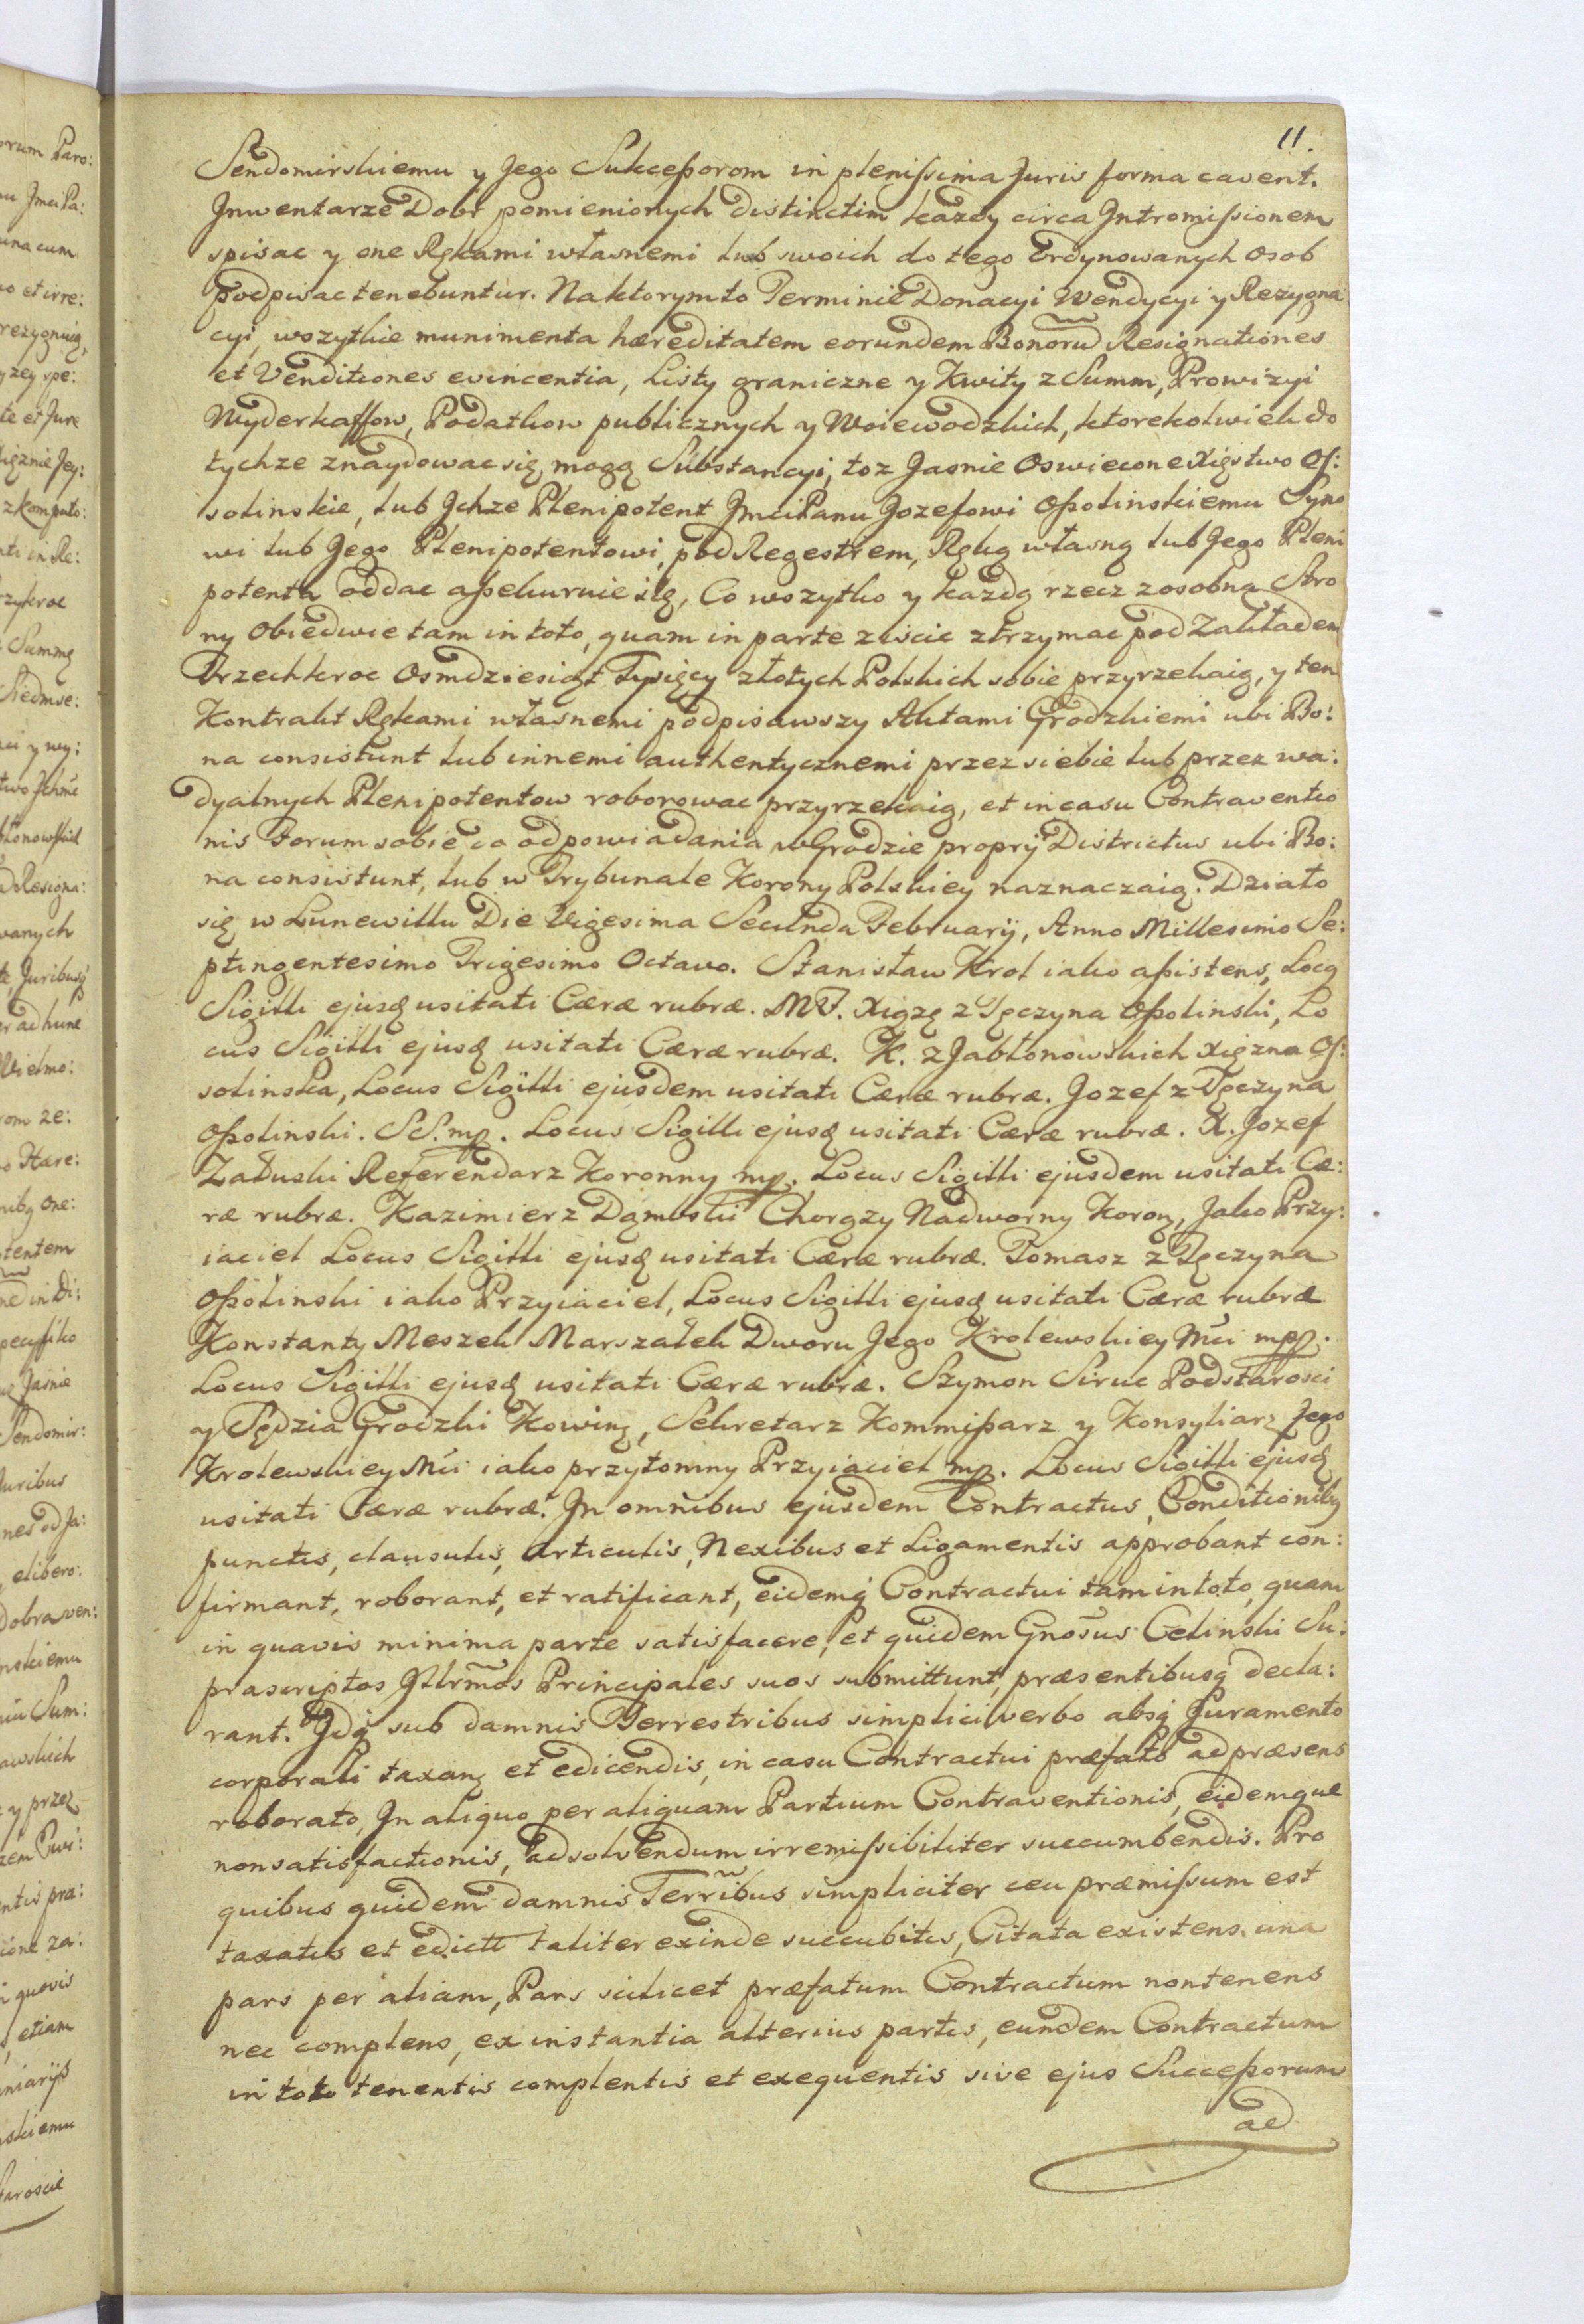 11.
Sendomirskiemu y Jego Sukceßorom in plenissima Juris forma cavent.
Jnwentarze Dobr pomienionych distinctim kazdy circa Jntromissionem
spisac y one Rękami własnemi lub swoich do tego Ordynowanych osob
podpisac tenebuntur. Naktorymto Terminie Donacyi Wendycyi y Rezygna
cyi, wszytkie munimenta hæreditatem eorundem Bonorũ Resignationes
et Venditiones evincentia, Listy graniczne y Kwity z Summ, Prowizyi
Wyderkaffow, Podatkow publicznych y Woiewodzkich, ktorekolwiek do
tychze znaydowac się mogą Substancyi, toz Jasnie Oswiecone Xięstwo Os:
solinskie, lub Jchze Plenipotent JmciPanu Jozefowi Oßolinskiemu Syno
wi lub Jego Plenipotentowi, pod Regestrem, Ręką własną lub Jego Pleni
potenta oddac aßekuruie się, Co wszytko y kazdą rzecz zosobna Stro
ny Obiedwie tam in toto, quam in parte ziscic ztrzymac pod Zakładem
Trzechkroc Osmdziesiąt Tysięcy złotych Polskich sobie przyrzekaią, y ten
Kontrakt Rękami własnemi podpisawszy Aktami Grodzkiemi ubi Bo:
na consistunt lub innemi authentycznemi przez siebie lub przez wa:
dyalnych Plenipotentow roborowac przyrzekaią, et incasu Contraventio
nis Forum sobie do odpowiadania w Grodzie proprÿ Districtus ubi Bo:
na consistunt, lub w Trybunale Korony Polskiey naznaczaią. Działo
się w Lunewillu Die Vigesima Secunda Februarÿ, Anno Millesimo Se:
ptingentesimo Trigesimo Octavo. Stanisław Krol iako aßistens, Locq
Sigilli ejusđ usitati Cæræ rubræ. M F. Xiązę z Tęczyna Oßolinski, Lo
cus Sigilli ejusđ usitati Cæræ rubræ. K. z Jabłonowskich Xięzna Os:
solinska, Locus Sigilli ejusdem usitati Cæræ rubræ. Jozef z Tęczyna
Oßolinski. S S. mp. Locus Sigilli ejusđ usitati Cæræ rubræ. X. Jozef
Załuski Referendarz Koronny mp. Locus Sigilli ejusdem usitati Cæ:
ræ rubræ. Kazimierz Dąmbski Chorązy Nadworny Koroń, Jako Przy:
iaciel Locus Sigilli ejusđ usitati Cæræ rubræ. Tomasz z Tęczyna
Oßolinski iako Przyiaciel, Locus Sigilli ejusđ usitati Cæræ rubræ
Konstanty Meszek Marszałek Dworu Jego Krolewskiey Mci mpp.
Locus Sigilli ejusđ usitati Cæræ rubræ. Szymon Siruc Podstarosci
y Sędzia Grodzki Kowinę, Sekretarz Kommißarz y Konsyliarz Jego
Krolewskiey Mci iako przytomny Przyiaciel mp. Locus Sigilli ejusđ
usitati Cæræ rubræ. Jn omnibus ejusdem Contractus, Conditionibq
punctis, clausulis, Articulis, Nexibus et Ligamentis approbant con:
firmant, roborant, et ratificant, eidemq́ Contractui tam in toto, quam
in quavis minima parte satisfacere, et quidem Gnosus Celinski Su:
prascriptos Jllrm̃os Principales suos submittunt, præsentibusq́ decla:
rant. Jdq́ sub damnis Terrestribus simplici verbo absq́ Juramento
corporali taxanę et edicendis, in casu Contractui præfato ad præsens
roborato, Jn aliquo per aliquam Partium Contraventionis, eidemque
nonsatisfactionis, adsolvendum irremissibiliter succumbendis. Pro
quibus quidem damnis Terrĩbus simpliciter ceu præmissum est
taxatis et edictt taliter exinde succubitis, Citata existens una
pars per aliam, Pars scilicet præfatum Contractum nontenens
nec complens, ex instantia alterius partis, eundem Contractum
in toto tenentis complentis et exequentis sive ejus Succeßorum
ad